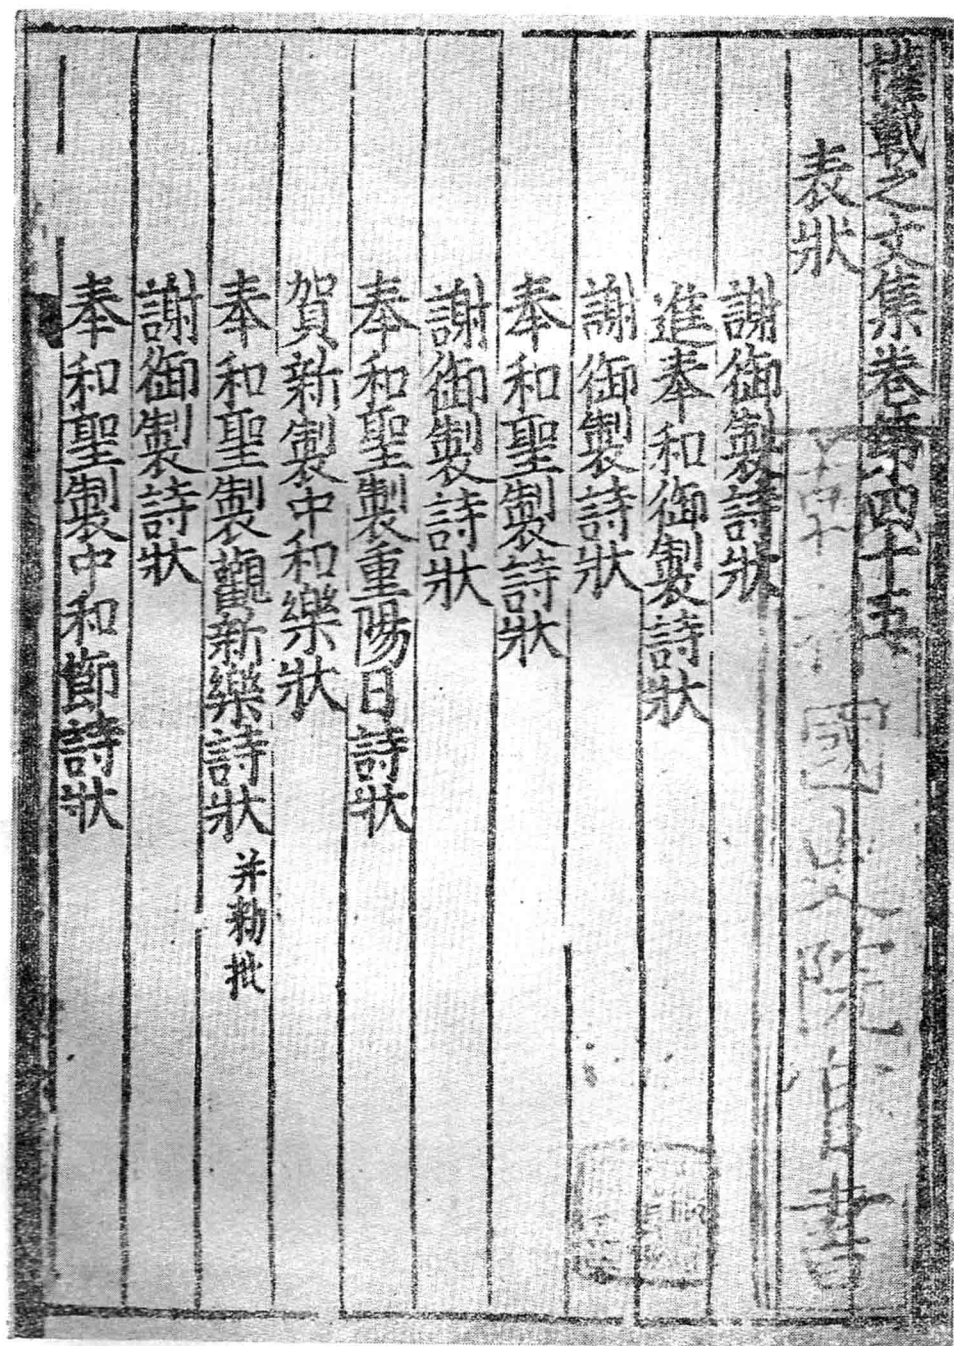 權載之文集卷第四十五
表狀
謝御製詩狀
進奉和御製詩狀
謝御製詩狀
奉和聖製詩狀
謝御製詩狀
奉和聖製重陽日詩狀
賀新製中和樂狀
奉和聖製觀新樂詩狀 并勑批
謝御製詩狀
奉和聖製中和節詩狀
國史院官書